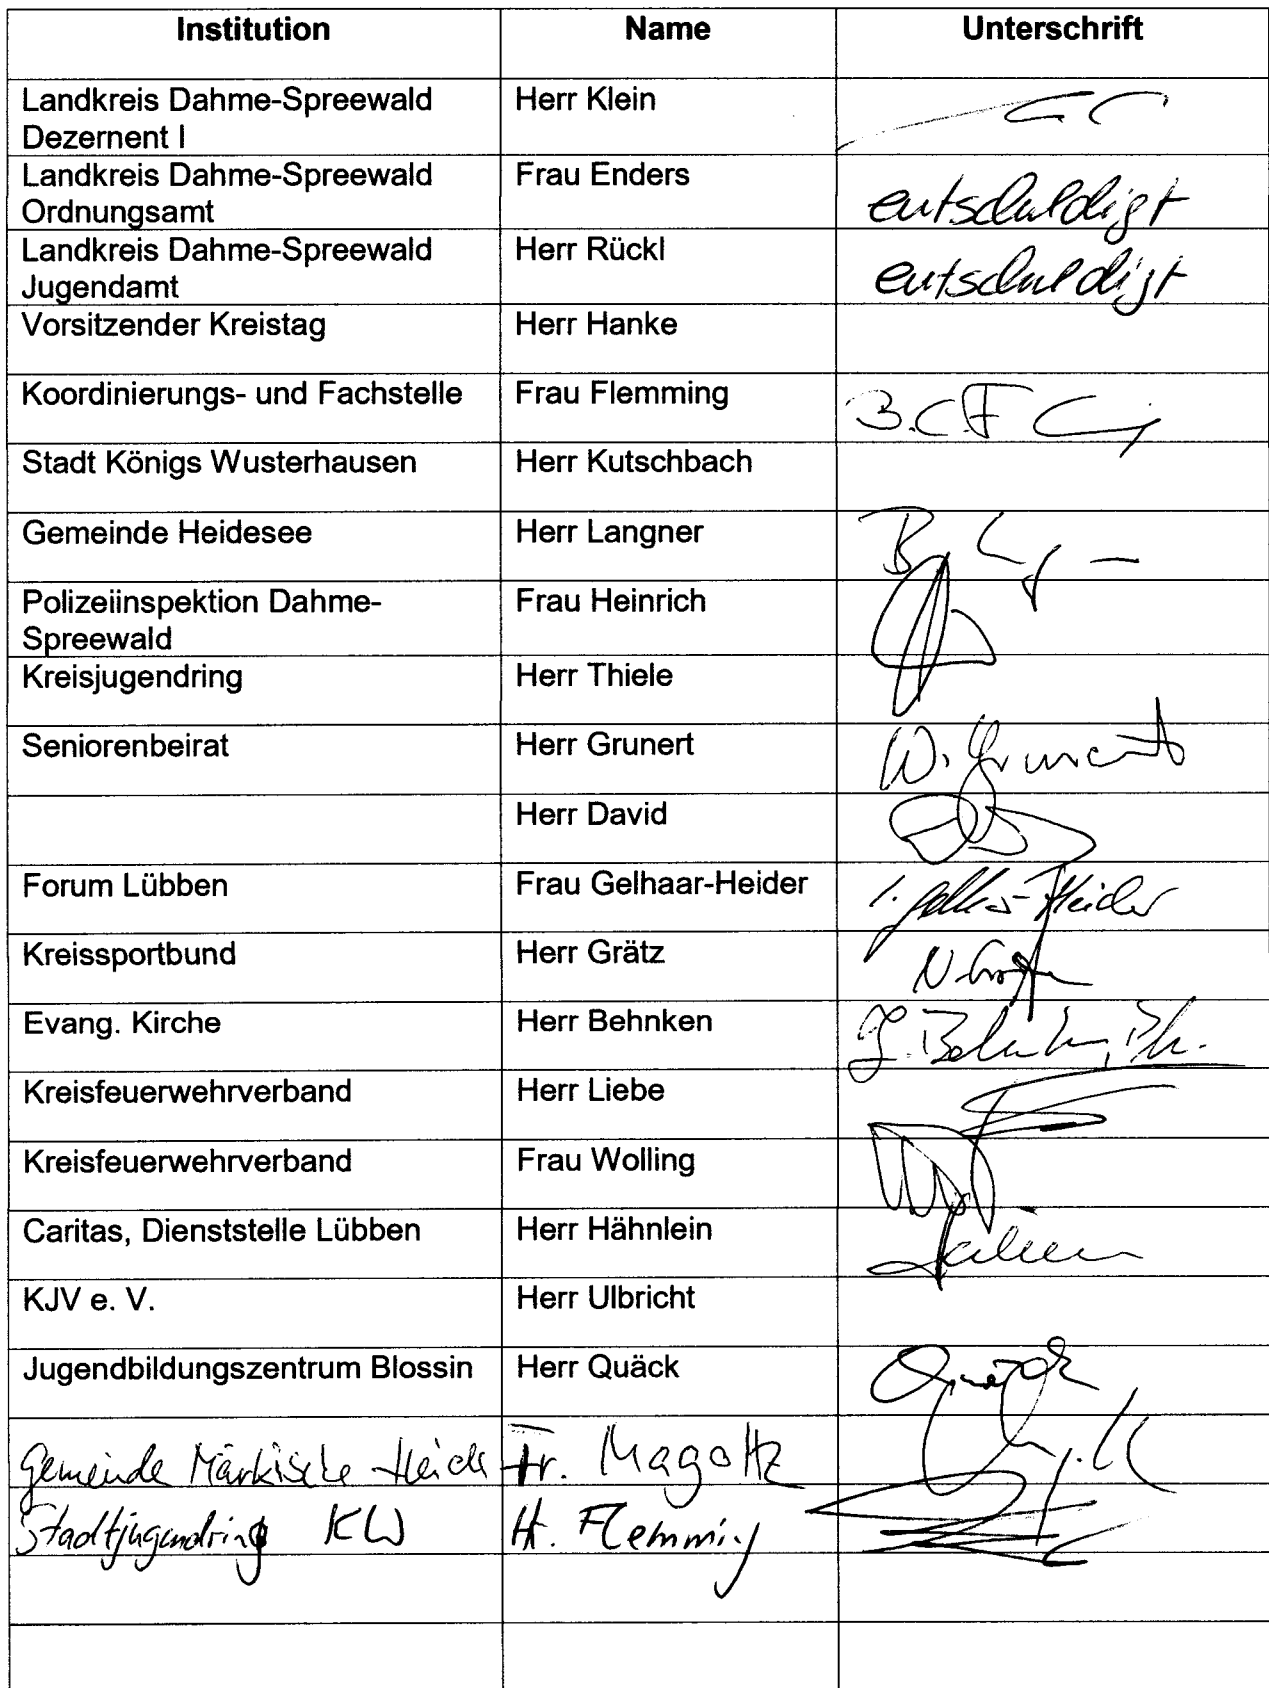 Institution Name Unterschrift
Landkreis Dahme-Spreewald Herr Klein
Dezernent I
Landkreis Dahme-Spreewald Frau Enders entschuldigt
Ordnungsamt
Landkreis Dahme-Spreewald Herr Rückl entschuldigt
Jugendamt
Vorsitzender Kreistag Herr Hanke
Koordinierungs- und Fachstelle Frau Flemming
Stadt Königs Wusterhausen Herr Kutschbach
Gemeinde Heidesee Herr Langner
Polizeiinspektion Dahme- Frau Heinrich
Spreewald
Kreisjugendring Herr Thiele
Seniorenbeirat Herr Grunert W. Grunert
Herr David
Forum Lübben Frau Gelhaar-Heider
Kreissportbund Herr Grätz
Evang. Kirche Herr Behnken
Kreisfeuerwehrverband Herr Liebe
Kreisfeuerwehrverband Frau Wolling
Caritas, Dienststelle Lübben Herr Hähnlein
KJV e. V. Herr Ulbricht
Jugendbildungszentrum Blossin Herr Quäck
Gemeinde Märkische Heide Fr. Magoltz
Stadtjugendring KW H. Flemming